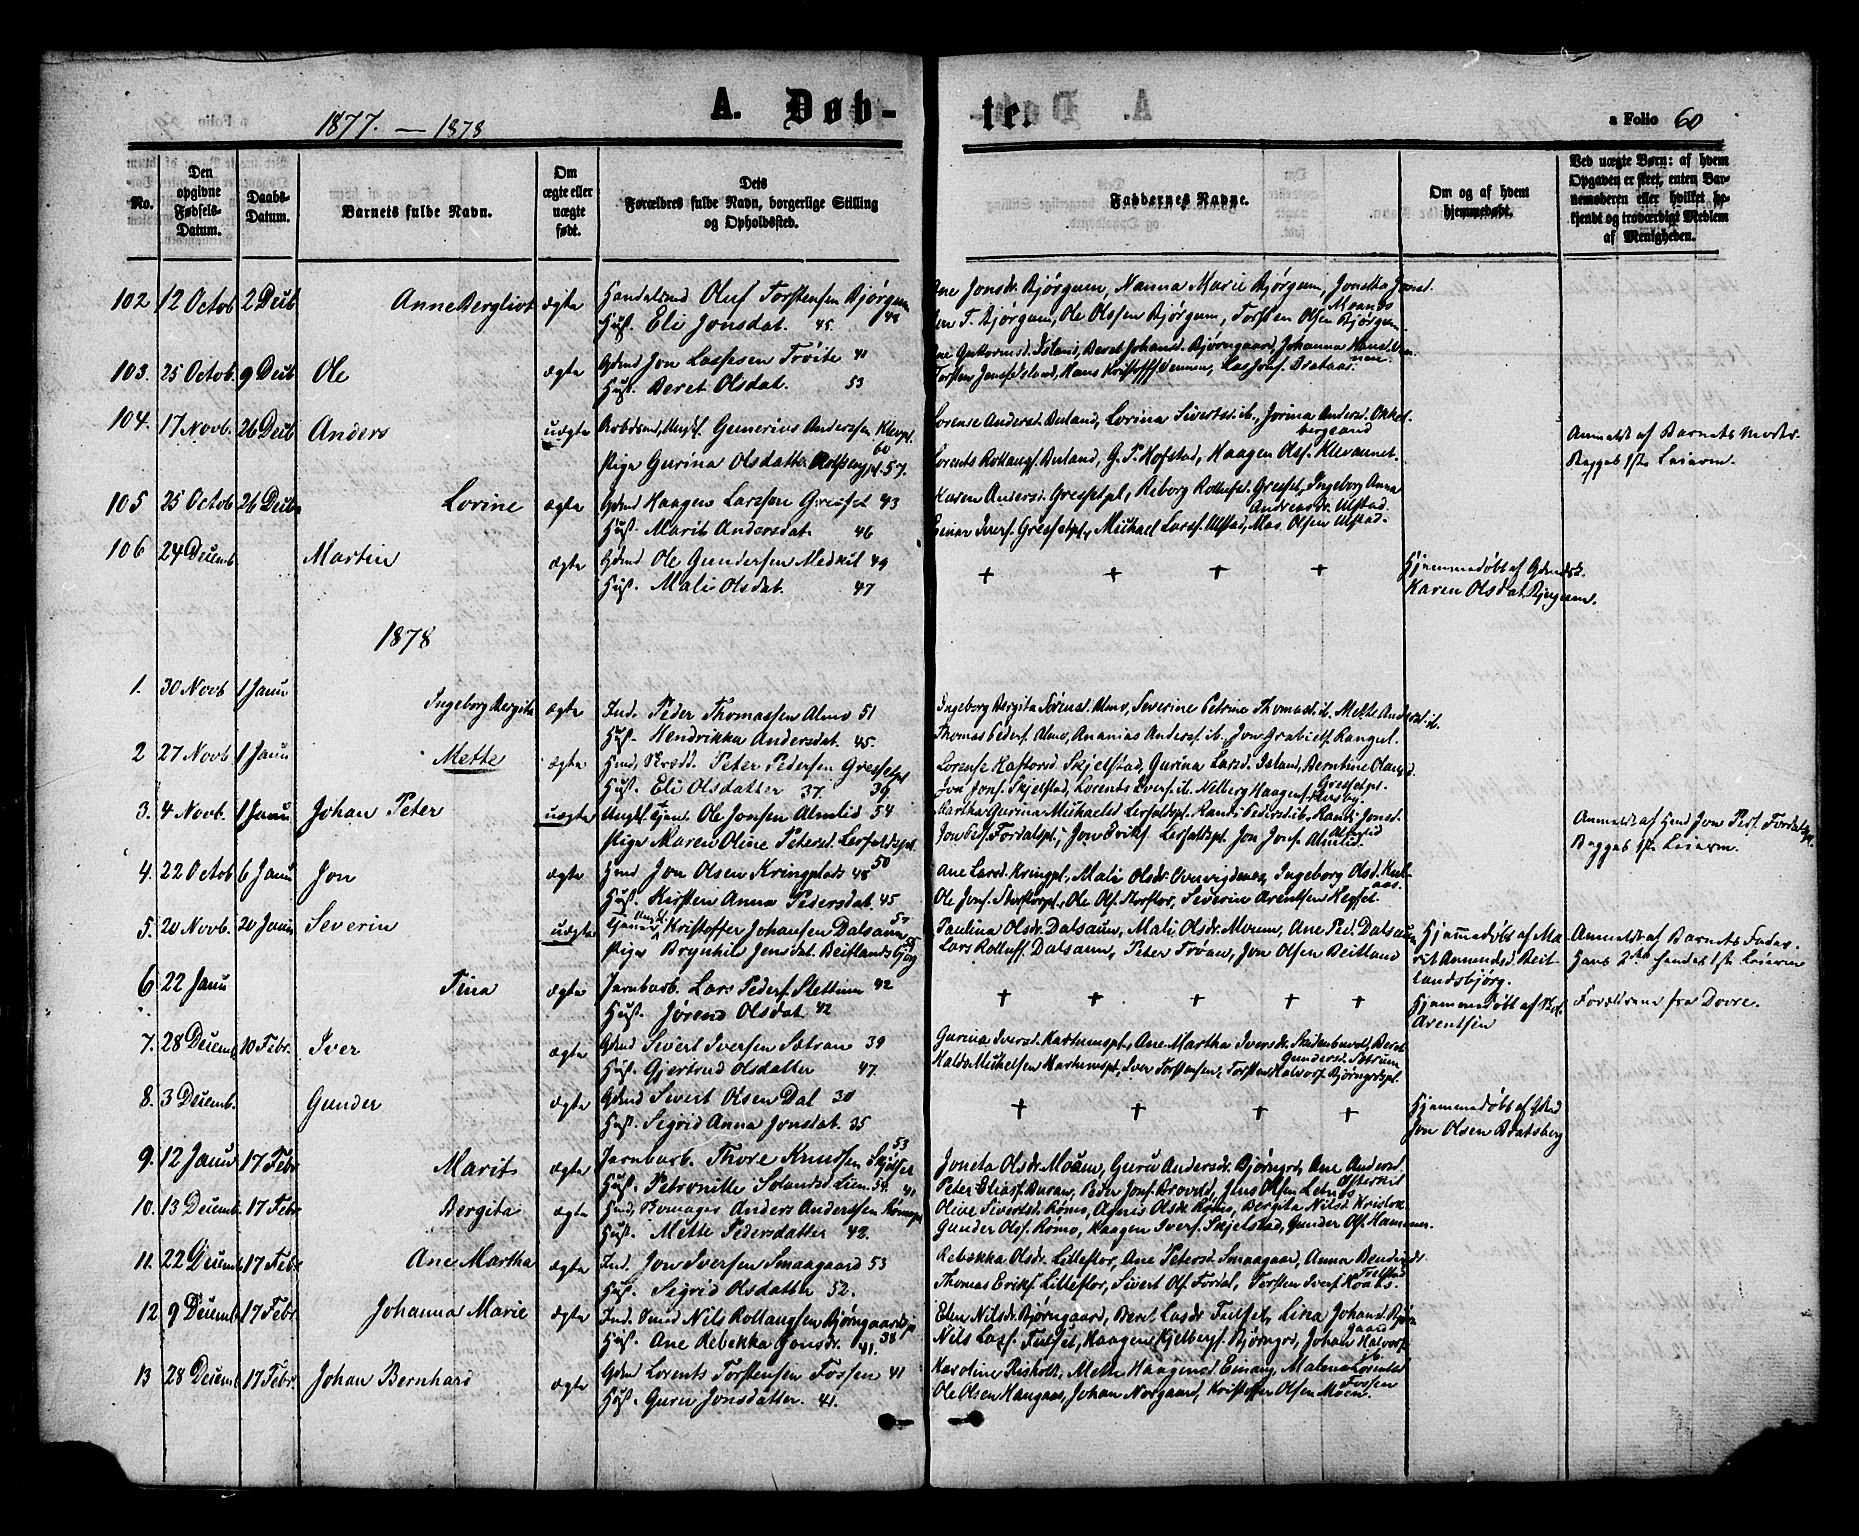 1877. — 1878
A. Døb-
te.
a Folio 60
No.
Den opgivne Fødsels-Datum.
Daabs-Datum.
Barnets fulde Navn.
Om ægte eller uægte født.
Dets Forældres fulde Navn, borgerlige Stilling og Opholdssted.
Faddernes Navne.
Om og af hvem hjemmedøbt.
Ved uægte Børn: af hvem Opgaven er skeet, enten Barnemoderen eller hvilket bekjendt og troværdigt Medlem af Menigheden.
102 12 Octob 2 Decb Anne Bergliot ægte Handelsmd Oluf Torstensen Bjørgum 48
Hust. Eli Jonsdat. 45
Ane Jonsdr. Bjørgum, Nanna Marie Bjørgum, Jonetta Jonsd. Moands
T. Bjørgum, Ole Olssen Bjørgum, Torsten Olsen Bjørgum
103. 25 Octob. 9 Decb Ole ægte Gdmd Jon Lassesen Trøite 41
Hust. Beret Olsdat. 53
Guttormsd. Island, Beret Johansd. Bjørngaard, Johanna
Torsten Hans Kristoffs Vennen,
104. 17 Novb. 26 Decb Anders uægte Arbdsmd, Ungk. Gunerius Anderssen Klevpl. 60
Pige Gurina Olsdatter 57.
Lorense Andersd. Berland, Lorina Sivertsd. ib., Jorina Andersd.
Lorents Rollaugs. Berland, G. P. Hofstad, Haagen Ols. Klevannet.
Anmeldt af Barnets Moder.
Begges 1ste Leierm.
105 25 Octob 26 Decb Lorine ægte Gdmd Haagen Larssen Gresset 43
Hust. Marit Andersdat. 46
Karen Andersd. Gressetpl, Reborg Rollefsd. Gresset, Ingeborg Anna Andreasdr. Ulstad
Einar Ivers. Gressetpl., Michael Larss. Ulstad, Mas. Olsen Ulstad.
106 24 Decemb Martin ægte Gdmd Ole Gundersen Medkil 49
Hust. Mali Olsdat. 47
+ + + +
Hjemmedøbt af Gdmdsk.
Karen Olsdat. Bjørgum.
1878
1. 30 Novb 1 Janu Ingeborg Bergita ægte Ind. Peder Thomassen Almo 51
Hust. Hendrikka Andersdat. 45.
Ingeborg Bergita Sørensd. Almo, Severine Petrine Thomasd. ib. Mette Andersd. ib.
Thomas Peders. Almo, Ananias Anderss. ib, Jon Gabriels. Rangul.
2 27 Novb 1 Janu Mette ægte Peter Pedersen Gressetpl 39
Hust. Eli Olsdatter 37.
Lorense Haftorsd. Skjelstad, Gurina Larsd. Island, Berntine Olausd. Gressetpl.
Jon Jons. Skjelstad, Lorents Evers. ib. Nelberg Haagens.
3. 4 Novb. 1 Janu Johan Peter uægte Ungk. Tjen. Ole Jonsen Almlid 54
Pige Maren Oline Petersd. Lersaldspl. 50
Martha Gurina Michaelsd. Lersaldspl. Randi Pedersd. ib, Randi Jonsd. Almlid
Fordalspl., Jon Eriks. Lersaldspl. Jon Jons. Almlid.
Anmeldt af Hmd Jon Pers. Fordalspl.
Begges 1ste Leierm.
4. 22 Octob 6 Janu Jon ægte Hmd Jon Olsen Kringplads 48
Hust. Kirsten Anna Pedersdat. 45
Ane Larsd. Kringpl., Mali Olsdr. Overvigdenes, Ingeborg Olsd.
Ole Jons. Storflorpl., Ole Ols. Storflor, Severin Arentsen Hegset.
5. 20 Novb. 20 Janu Severin uægte Ungk. Tjener Kristoffer Johansen Dalsaune 57
Pige Brynhil Jensdat. Beitlandsbjørg
Paulina Olsdr. Dalsaun, Mali Olsdr. Moum, Ane Ped. Dalsaun
Lars Rolluffs. Dalsaun, Peter Trøan, Jon Olsen Beitland
Hjemmedøbt af Marit Amundsd. Beitlandsbjørg.
Anmeldt af Barnets Fader.
Hans 2det hendes 1ste Leierm
6 22 Janu Tina ægte Jarnbarb. Lars Peders. Slettum 42
Hust. Jørend Olsdat. 42
+ + + + +
Hjemmedøbt af
Arentsen
Forældrene fra Dovre.
7. 28 Decemb. 10 Febr. Iver ægte Gdmd Sivert Iversen Sætran 39
Hust. Gjertrud Olsdatter 47.
Gurina Iversd. Hartumspl., Ane Martha Iversdr. Beret Gundersd. Sætrum
Haldo Mikkelsen Hartumspl., Iver Torstensen, Torsten Halvors. Bjørngrdspl.
8. 3 Decemb. Gunder ægte Gdmd Sivert Olsen Dal 30
Hust. Sigrid Anna Jonsdat. 35
+ + + +
Hjemmedøbt af Gdmd
Jon Olsen Bratsberg
9. 12 Janu 17 Febr Marit ægte Jarnbarb. Thore Knudsen 53
Hust. Petronille
Joneta Olsdr. Moum, Guru Andersdr. Bjørngrd, Ane Andersd.
Peter Elias. Peder Jons. Jens Olsen
10. 13 Decemb. 17 Febr. Bergita ægte Hmd, Anders Anderssen Rømopl 41
Hust. Mette Pedersdatter 42.
Olive Sivertsd. Rømo, Agnes Olsdr. Rømo, Bergita Nilsd.
Gunder Ols. Rømo, Haagen Ivers. Skjelstad, Gunder Ols. Hammer.
11. 22 Decemb 17 Febr Ane Martha ægte Ind. Jon Iversen Smaagaard 53
Hust. Sigrid Olsdatter 52.
Rebekka Olsdr. Lilleflor, Ane Petersd. Smaagaard, Anna Bendixdr.
Thomas Eriks. Lilleflor, Sivert Ols. Fordal, Torsten Ivers.
12 9 Decemb 17 Febr. Johanna Marie ægte Ind. Smed Nils Rollaugsen Bjørngaardspl 38
Hust. Ane Rebekka Jonsdr. 41.
Elen Nilsdr. Bjørngaard, Beret Larsdr. Fulset, Lina Johansd. Bjørngaard
Nils Lass. Fulset, Haagen Kjelbergs. Bjørngrd, Johan Halvors. ib
13 28 Decemb 17 Febr. Johan Bernhard ægte Gdmd Lorents Torstensen Fossen 41
Hust. Guru Jonsdatter. 41.
Karoline Risholt, Mette Haagensd. Einang, Malena Lorentsd. Fossen
Ole Olsen Haugaas, Johan Norgaard, Kristoffer Olsen Moen.